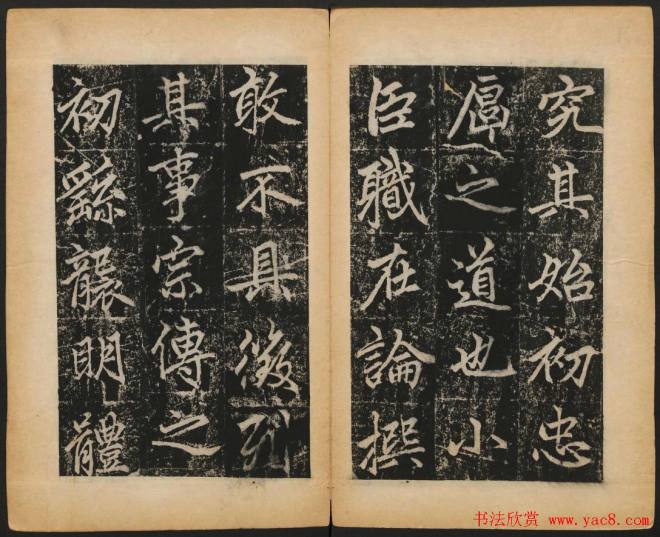 究其始初忠
厚之道也小
臣職在論撰
敢不具徵列
其事宗傳之
初繇襲明體
书法欣赏 www.yac8.com